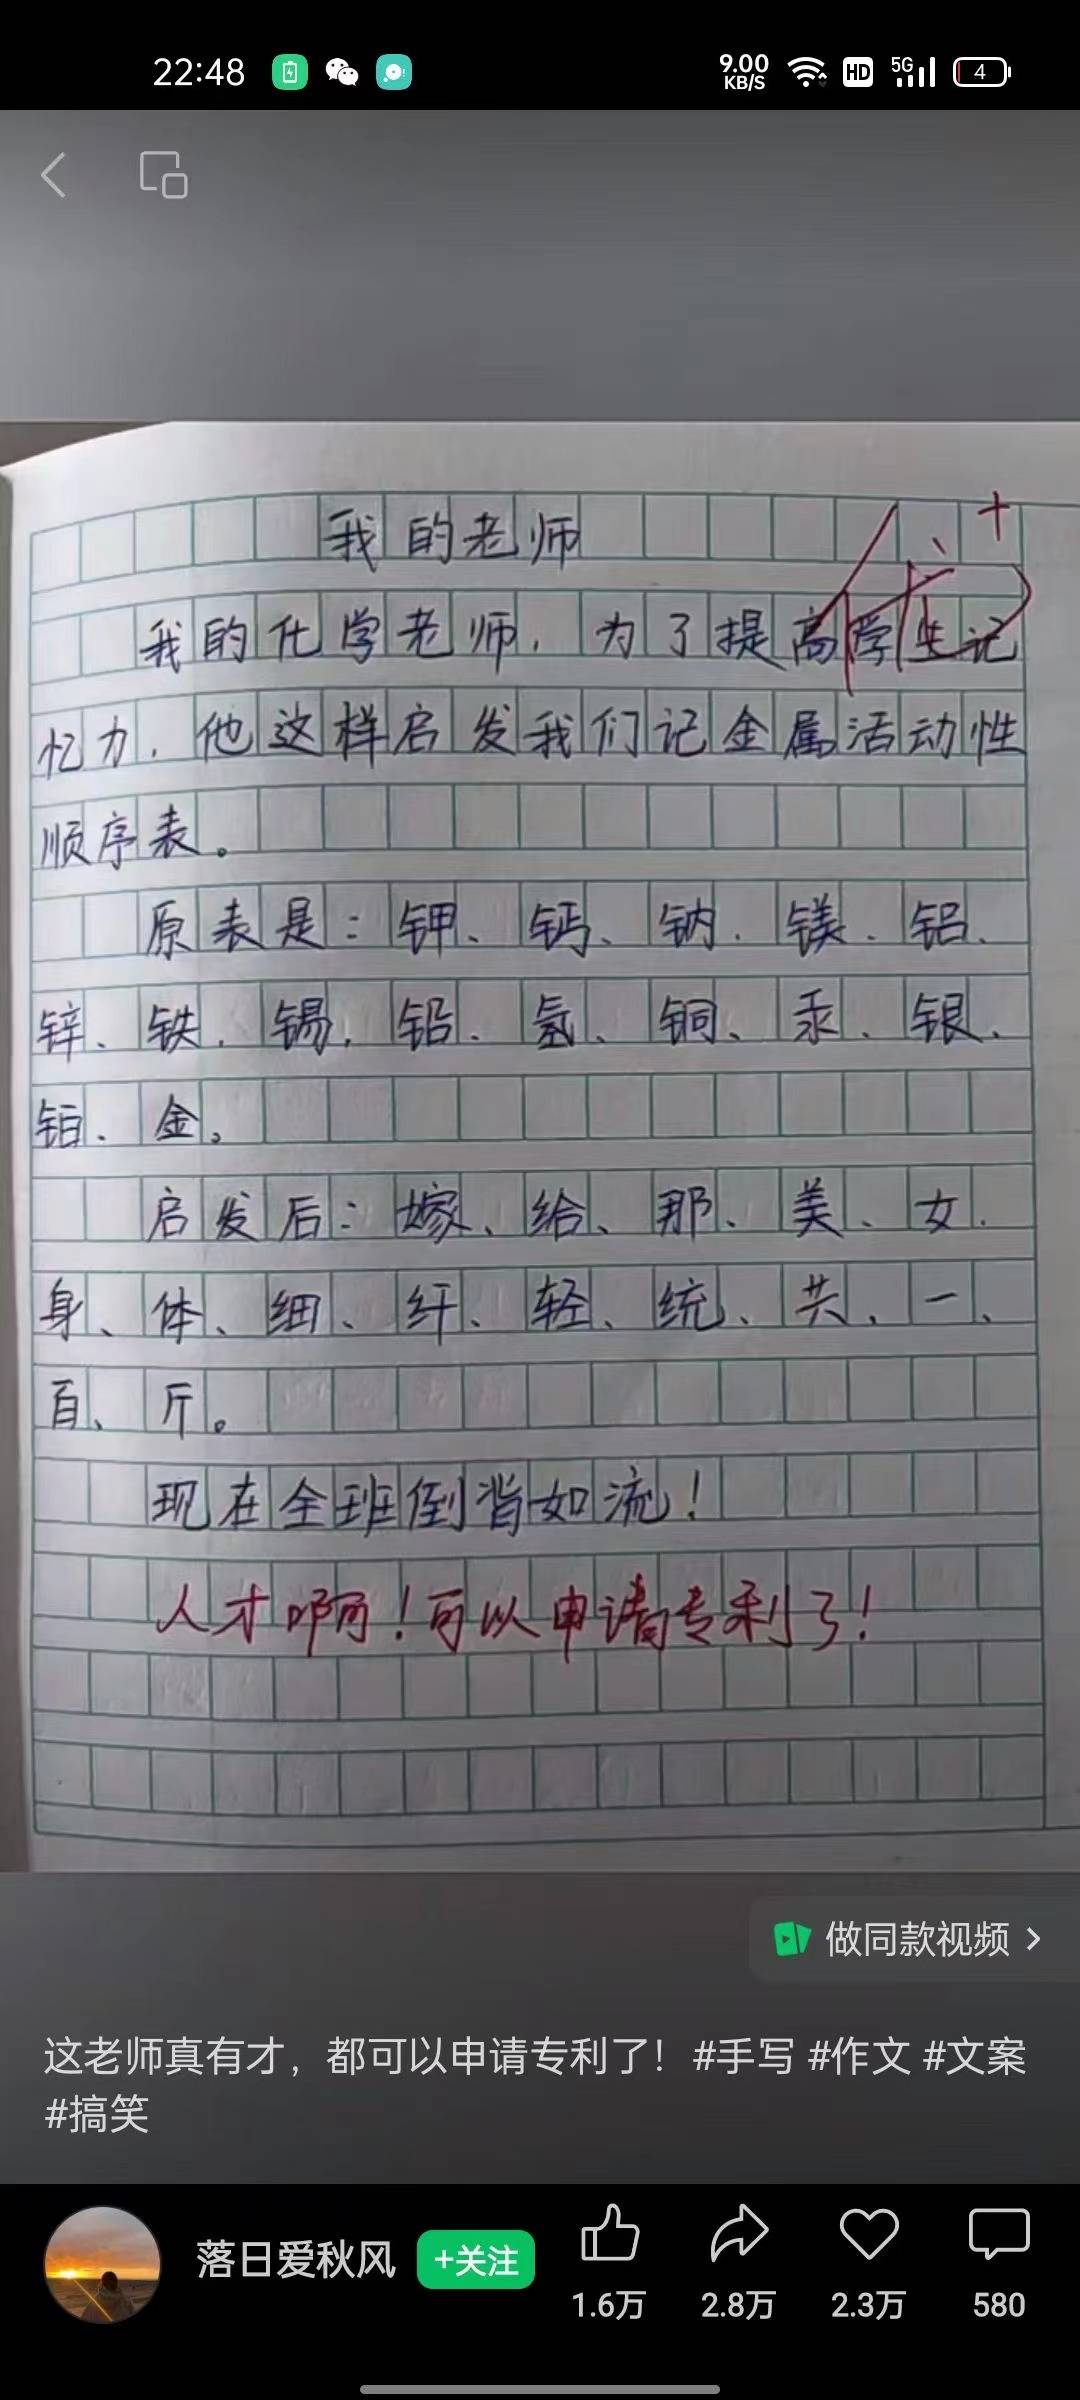 22:48
9.00
KB/S
HD
5G
4
我的老师
优+
我的化学老师,为了提高学生记
忆力,他这样启发我们记金属活动性
顺序表。
原表是:钾、钙、钠、镁、铝、
锌、铁、锡、铅、氢、铜、汞、银、
铂、金。
启发后:嫁、给、那、美、女、
身、体、细、纤、轻、统、共、一、
百、斤。
现在全班倒背如流!
人才啊!可以申请专利了!
做同款视频
这老师真有才,都可以申请专利了!#手写 #作文 #文案
#搞笑
落日爱秋风
+关注
1.6万
2.8万
2.3万
580